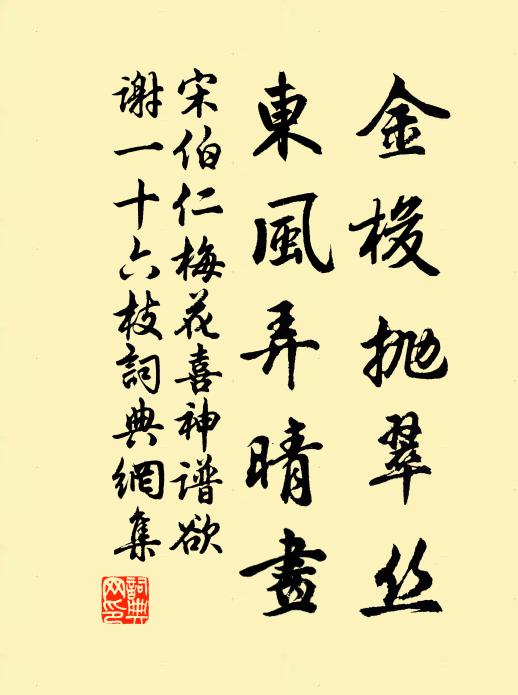 金梭抛翠丝
東風弄晴晝
宋伯仁梅花喜神谱欲
謝一十六枝詞典網集